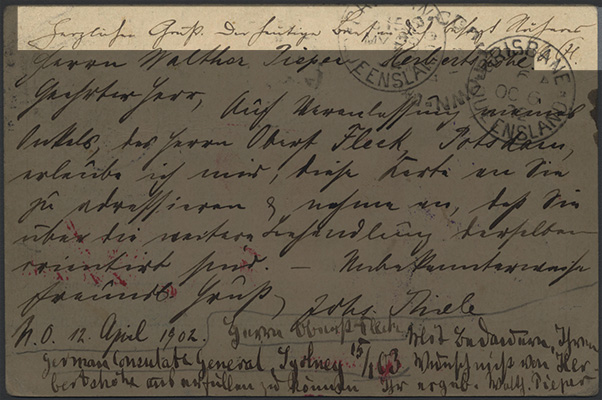 Herzlichen Gruß. Der heutige
Herrn Walther Pieper Herbertshöhe
Geehrter Herr,
Auf Veranlassung meines
Onkels, des Herrn Oberst Fleck, Potsdam,
erlaube ich mir, diese Karte an Sie
zu adressieren & nehme an, daß Sie
über die weitere Behandlung derselben
orientirt sind. — Unbekannterweise
freundl Gruß Johs. Thiele
N. O. 12. April 1902. Herrn Oberst Fleck Mit Bedauern, Ihren
German Consulate General, Sydney 15/1 03 Wunsch nicht von Her-
bertshöhe aus erfüllen zu können Ihr ergeb. Walth. Pieper
BRISBANE
OC 6
QUEENSLAND
QUEENSLAND